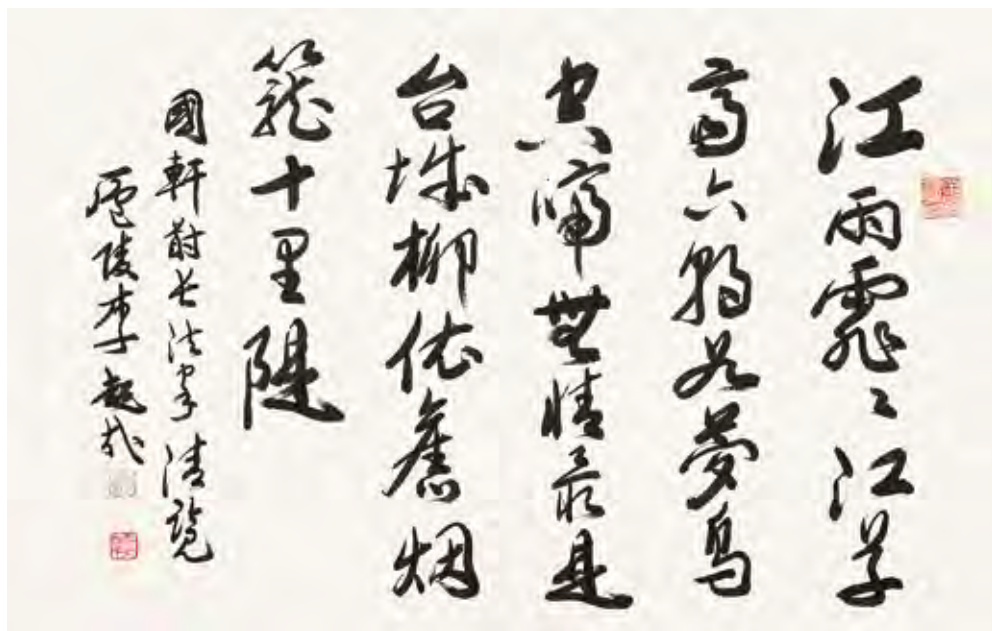 江雨霏〻江草
齊六朝如夢鳥
空啼無情最是
台城柳依舊烟
籠十里隄
國軒尉長法家清覽
廬陵李超哉